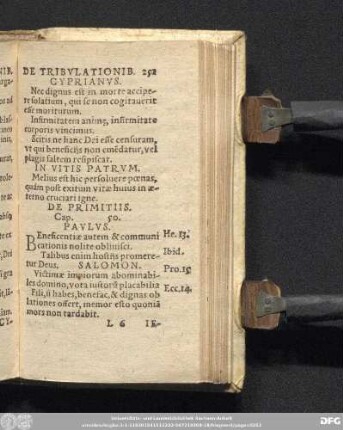 DE TRIBVLATIONIB. 252
CYPRIANVS.
Nec dignus est in morte accipe-
re solatium, qui se non cogitauerit
esse moriturum.
Infirmitatem animę, infirmitate
corporis vincimus.
Scitis ne hanc Dei esse censuram,
vt qui beneficiis non emēdatur, vel
plagis saltem resipiscat.
IN VITIS PATRVM.
Melius est hic persoluere pœnas,
quàm post exitium vitæ huius in æ-
terno cruciari igne.
DE PRIMITIIS.
Cap. 50.
PAVLVS.
BEneficentiæ autem & communi He. 13.
cationis nolite obliuisci.
Talibus enim hostiis promere- Ibid.
tur Deus. SALOMON.
Victimæ impiorum abominabi- Pro. 15
les domino, vota iustorū placabilia
Fili, si habes, benefac, & dignas ob Ecc. 14.
lationes offert, memor esto quoniā
mors non tardabit.
L 6 IE-
DFG